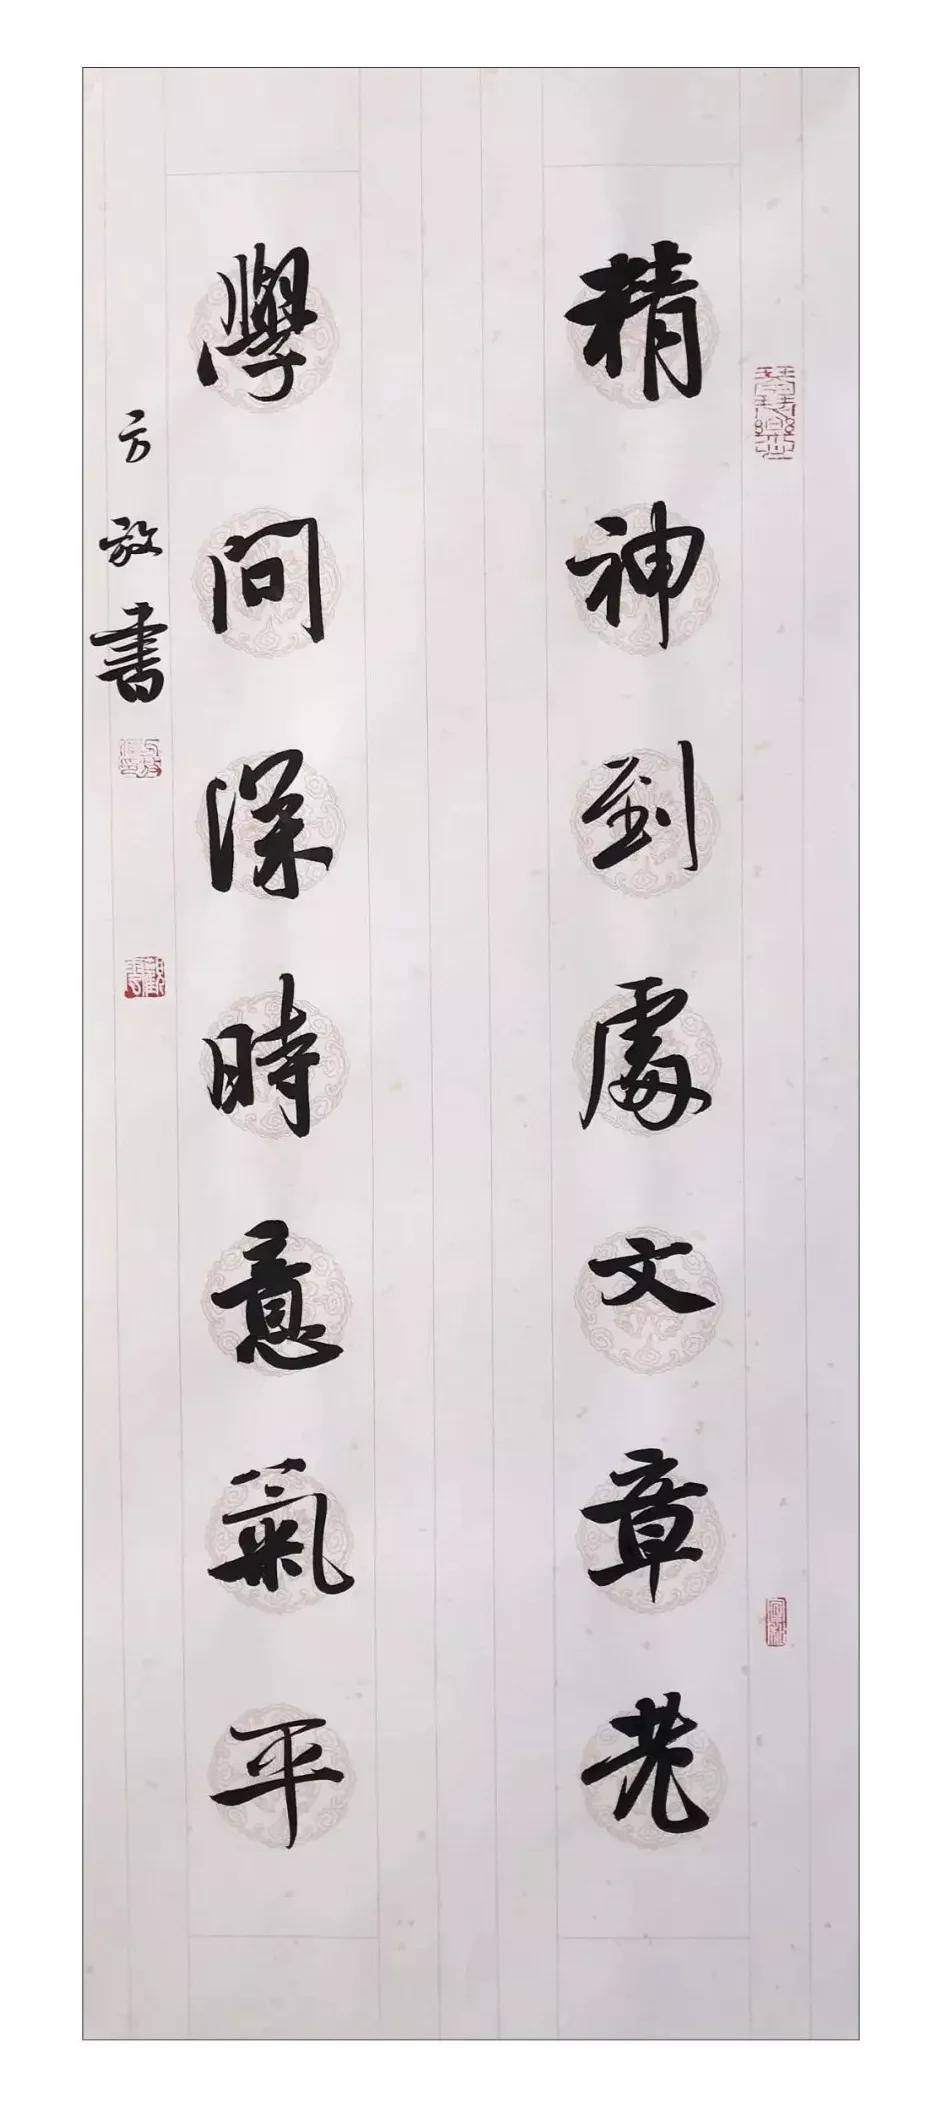 精神到處文章老
學問深時意氣平
方放書